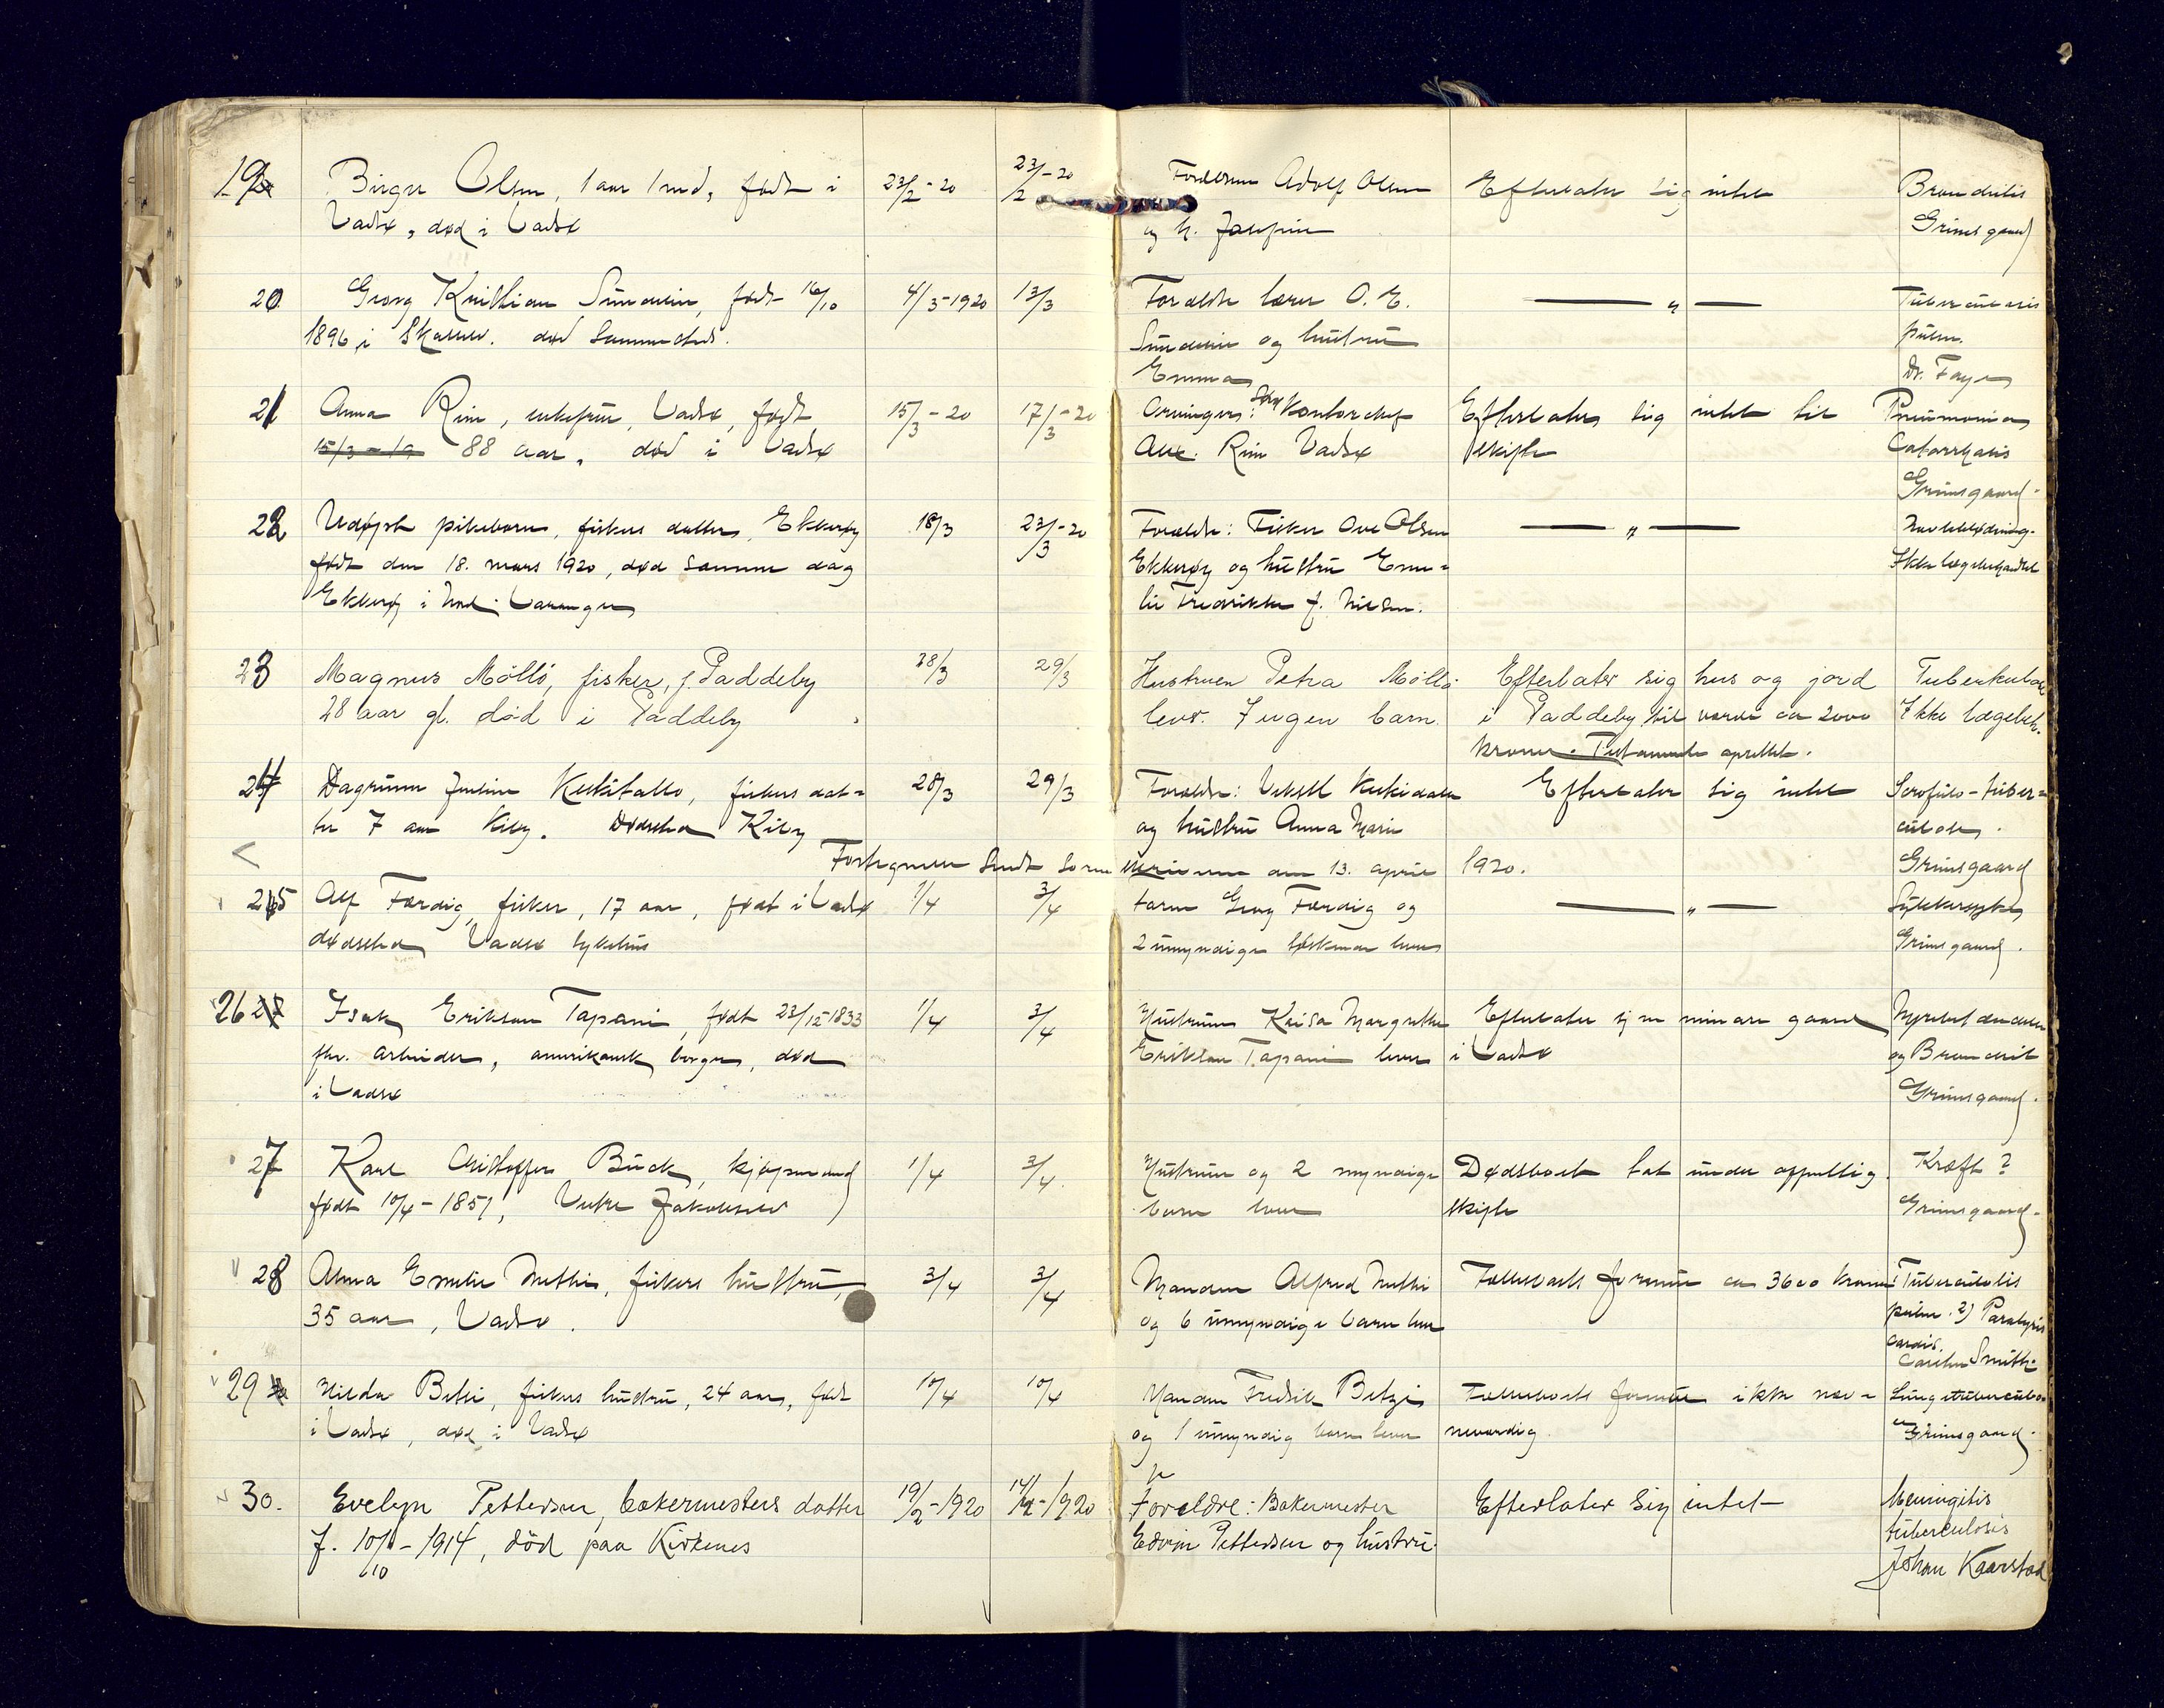 19 Birger Olsen, 1 aar 1 md, født i 23/2-20 23/2-20 Forældrene Adolf Olsen Efterlater sig intet Bronchitis
Vadsø, død i Vadsø og h. Josefine Grimsgaard
20 Georg Kristian født 16/10 4/3-1920 13/3 Forældre lærer O. E. — „ — Tuberculosis
1896 i død sammesteds. og hustru pulm.
Emma Dr. Faye
21 Anna Rim, enkefrue, Vadsø, født 15/3-20 17/3-20 Arvinger: Søn Kontorchef Efterlater sig intet til Pneumonia
15/3-19 88 aar, død i Vadsø Alex. Rim Vadsø skifte Catarrhalis
Grimsgaard.
22 Udøpt pikebarn, fiskers datter, Ekkerøy 18/3 23/3-20 Forældre: Fisker Ove Olsen — „ — Navleblødning.
født den 18. mars 1920, død samme dag Ekkerøy og hustru Emi= Ikke lægebehandlet
Ekkerøy i Nord-Varanger lie Fredrikke f. Nilsen.
23 Magnus Möllö, fisker, f. Paddeby 28/3 29/3 Hustruen Petra Möllö Efterlater sig hus og jord Tuberkulose
28 aar gl. död i Paddeby lever. Ingen barn. i Paddeby til værdi ca 2000 Ikke lægebeh.
kroner. Testamente oprettet.
24 Dagrunn Justine Keskitallo, fiskers dat= 28/3 29/3 Forældre: Keskitalo Efterlater sig intet Scrofulo-tuber=
ter 7 aar Kiby. Dødssted Kiby og hustru Anna Marie culose.
Fortegnelse sendt sorenskriveren den 13. april 1920. Grimsgaard
25 Alf Færdig, fisker, 17 aar, født i Vadsø 1/4 3/4 Faren Georg Færdig og — „ — Sukkersyke
dødssted Vadsø sykehus 2 umyndige søskende lever Grimsgaard.
26 Isak Erikson Tapani, født 23/12-1833 1/4 3/4 Hustruen Kaisa Margrethe Efterlater sig en mindre gaard Nyrebetændelse
fhv. arbeider, amerikansk borger, død Erikson Tapani lever i Vadsø og Bronchit
i Vadsø Grimsgaard.
27 Karl Christoffer Buck, kjøpmand 1/4 3/4. Hustruen og 2 myndige Dødsboet tat under offentlig Kræft?
født 10/4-1851, Vestre Jakobselv barn lever skifte Grimsgaard.
28 Anna Emilie Mathi, fiskers hustru, 3/4 3/4 Manden Alfred Mathi Fællesboets formue ca 3600 kroner Tuberculosis
35 aar, Vadsø. og 6 umyndige barn lever pulm. 2) Paralysis
cordis.
Carsten Smith.
29 Hilda Betzi, fiskers hustru, 24 aar, født 10/4 10/4 Manden Fredrik Betzi Fællesboets formue ikke næv= Lungetuberculose
i Vadsø, død i Vadsø og 1 umyndig barn lever neværdig. Grimsgaard.
30. Evelyn Pettersen, bakermesters datter 19/2-1920 14/4-1920 Foreldre: Bakermester Efterlater sig intet Meningitis
f. 10/10-1914, död paa Kirkenes Edvin Pettersen og hustru. tuberculosis
Johan Kaarstad